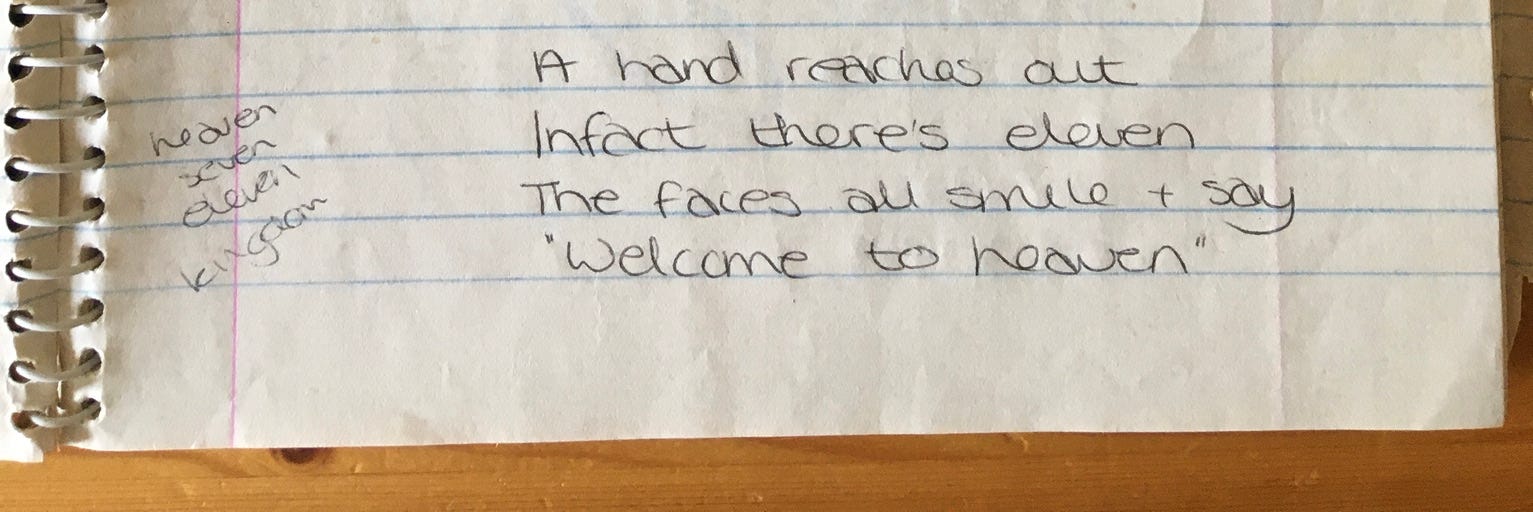 A hand reaches out
Infact there's eleven
The faces all smile + say
"Welcome to heaven"
heaven
seven
eleven
kingdom